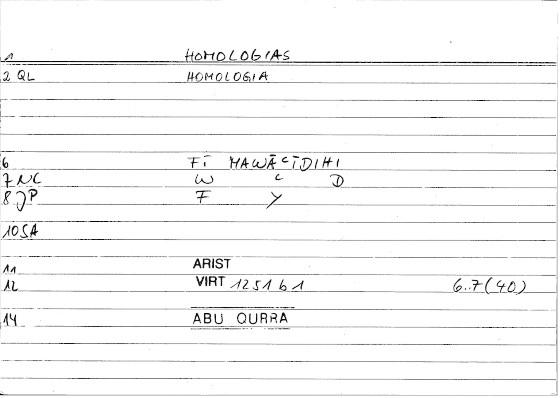 1 HOMOLOGIAS
2 QL HOMOLOGIA
6 FĪ MAWĀCĪDIHI
7 NC W C D
8 JP F Y
10 SA
11 ARIST
12 VIRT 1251 b 1 6.7(40)
14 ABU QURRA